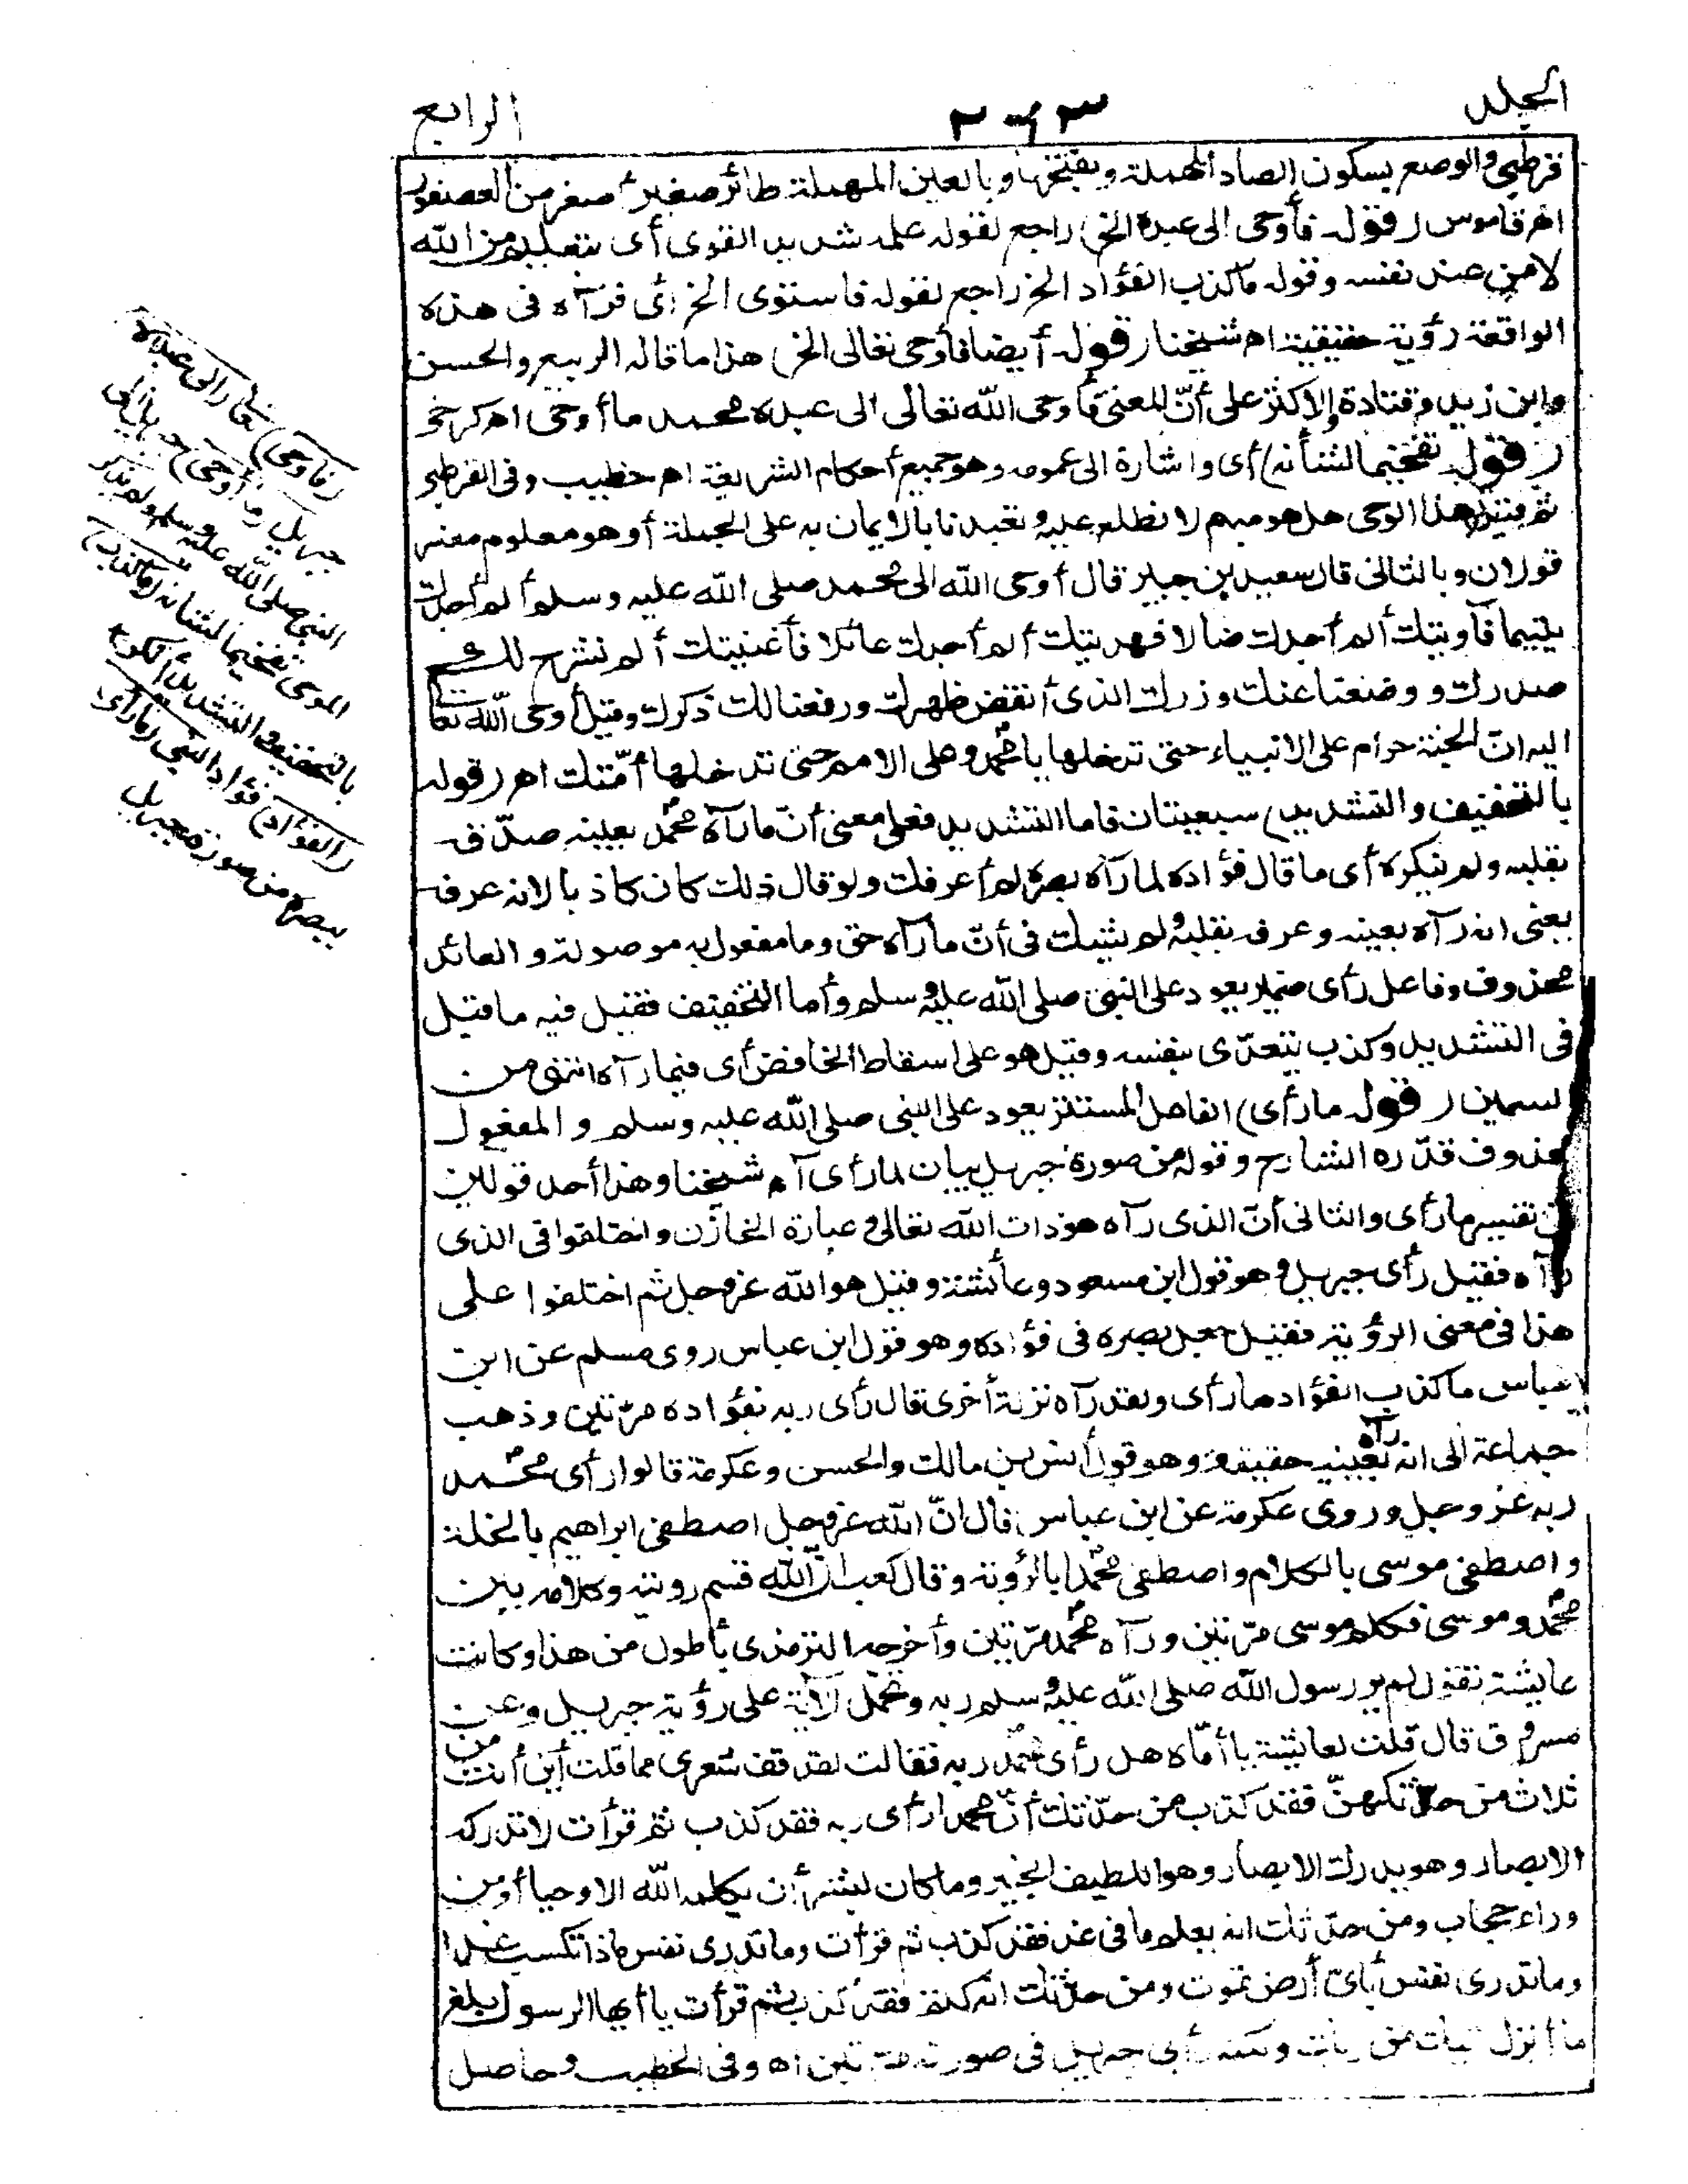 المجلد
الرابع
قرطبي والوصع بسكون الصاد المهملة وبفتحها وبالعين المهملة طائر صغير أصغر من العصفور
اهـ قاموس (قوله فأوحى الى عبده الخ) راجع لقوله علمه شديد القوى أى بتعليم من الله
لا من عند نفسه وقوله ما كذب الفؤاد الخ راجع لقوله فاستوى الخ أى فرآه فى هذه
الواقعة رؤية حقيقية اهـ شيخنا (قوله أيضا فأوحى تعالى الخ) هذا ما قاله الربيع والحسن
وابن زيد وقتادة والاكثر على أنّ المعنى فأوحى الله تعالى الى عبده محمد ما أوحى اهـ كرخى
(قوله تفخيما لشأنه) أى واشارة الى عمومه وهو جميع أحكام الشريعة اهـ خطيب وفى القرطبى
ثم قيل هذا الوحى هل هو مبهم لا نطلع عليه وتعبدنا بالايمان به على الجملة أو هو معلوم مفسر
قولان وبالثانى قال سعيد بن جبير قال أوحى الله الى محمد صلى الله عليه وسلم ألم أجدك
يتيما فآويتك ألم أجدك ضالا فهديتك ألم أجدك عائلا فأغنيتك ألم نشرح لك
صدرك ووضعنا عنك وزرك الذى أنقض ظهرك ورفعنا لك ذكرك وقيل أوحى الله تعا
اليه انّ الجنة حرام على الانبياء حتى تدخلها يا محمد وعلى الامم حتى تدخلها أمّتك اهـ (قوله
بالتخفيف والتشديد) سبعيتان فاما التشديد فعلى معنى أنّ ما رآه محمد بعينه صدّق
بقلبه ولم ينكره أى ما قال فؤاده لما رآه بصره لم أعرفك ولو قال ذلك كان كاذبا لانه عرفه
يعنى انه رآه بعينه وعرفه بقلبه ولم يشك فى أنّ ما رآه حق وما مفعول به موصولة والعائد
محذوف وفاعل رأى ضمير يعود على النبى صلى الله عليه وسلم وأما التخفيف فقيل فيه ما قيل
فى التشديد وكذب يتعدّى بنفسه وقيل هو على اسقاط الخافض أى فيما رآه انتهى من
السمين (قوله ما رأى) الفاعل المستتر يعود على النبى صلى الله عليه وسلم والمفعول
محذوف قدّره الشارح وقوله من صورة جبريل بيان لما رأى اهـ شيخنا وهذا أحد قولين
فى تفسير ما رأى والثانى أنّ الذى رآه هو ذات الله تعالى وعبارة الخازن واختلفوا فى الذى
رآه فقيل رأى جبريل وهو قول ابن مسعود وعائشة وقيل هو الله عز وجل ثم اختلفوا على
هذا فى معنى الرؤية فقيل جعل بصره فى فؤاده وهو قول ابن عباس روى مسلم عن ابن
عباس ما كذب الفؤاد ما رأى ولقد رآه نزلة أخرى قال رأى ربه بفؤاده مرّتين وذهب
جماعة الى انه رآه بعينيه حقيقة وهو قول أنس بن مالك والحسن وعكرمة قالوا رأى محمد
ربه عز وجل وروى عكرمة عن ابن عباس قال انّ الله عز وجل اصطفى ابراهيم بالخلة
واصطفى موسى بالكلام واصطفى محمدا بالرؤية وقال كعب انّ الله قسم رؤيته وكلامه بين
محمد وموسى فكلم موسى مرّتين ورآه محمد مرّتين وأخرجه الترمذى بأطول من هذا وكانت
عايشة تقول لم ير رسول الله صلى الله عليه وسلم ربه وتحمل الآية على رؤية جبريل وعن
مسروق قال قلت لعايشة يا أمّاه هل رأى محمد ربه فقالت لقد قف شعرى مما قلت أين أنت من
ثلاث من حدّثكهنّ فقد كذب من حدّثك أنّ محمدا رأى ربه فقد كذب ثم قرأت لا تدركه
الابصار وهو يدرك الابصار وهو اللطيف الخبير وما كان لبشر أن يكلمه الله الا وحيا أو من
وراء حجاب ومن حدّثك انه يعلم ما فى غد فقد كذب ثم قرأت وما تدرى نفس ماذا تكسب غدا
وما تدرى نفس بأىّ أرض تموت ومن حدّثك انه كتم فقد كذب ثم قرأت يا أيها الرسول بلغ
ما أنزل اليك من ربك ولكنه رأى جبريل فى صورته مرّتين اهـ وفى الخطيب وحاصل
(فأوحى) تعالى (الى عبده)
جبريل (ما أوحى) جبريل الى
النبى صلى الله عليه وسلم ولم يذكر
الموحى تفخيما لشأنه (ما كذب)
بالتخفيف والتشديد أنكر
(الفؤاد) فؤاد النبى (ما رأى)
ببصره من صورة جبريل